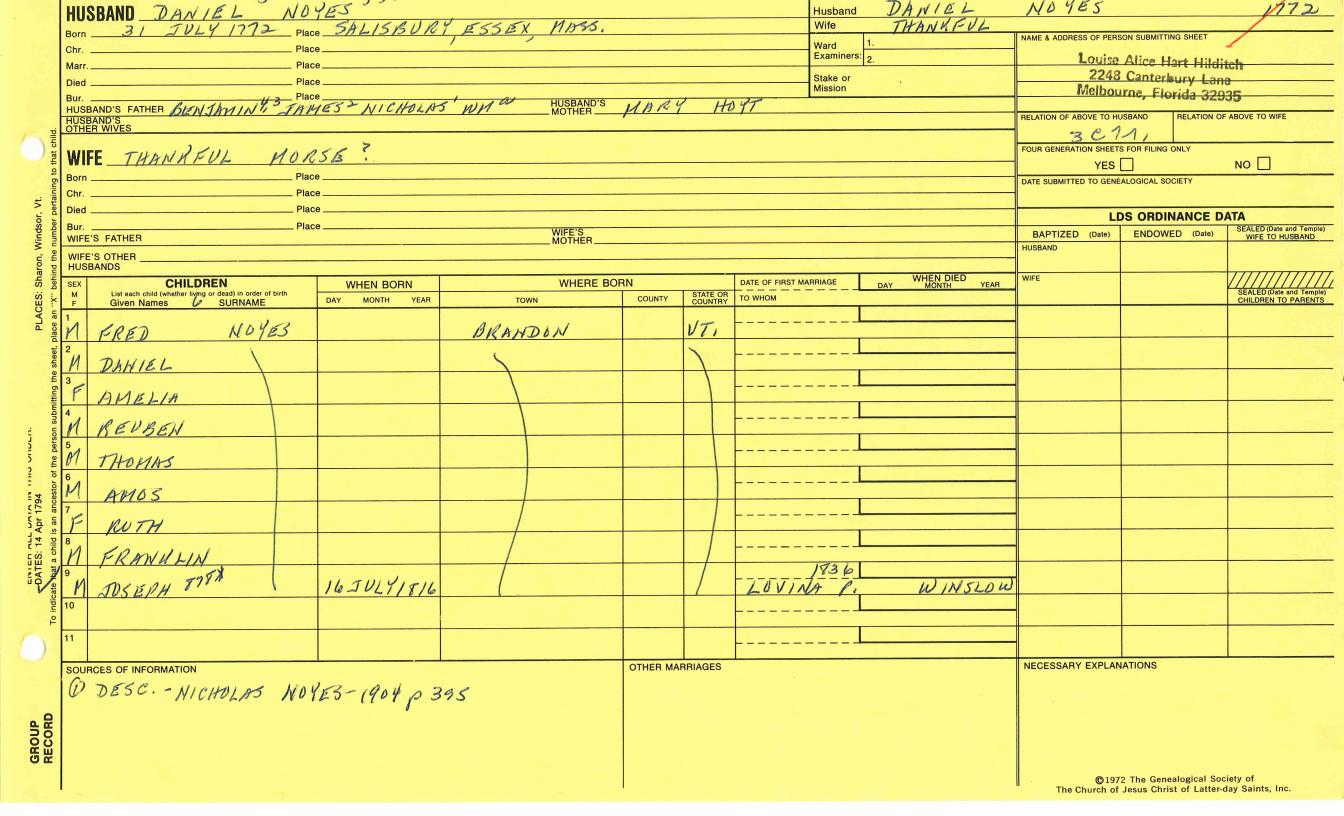 HUSBAND DANIEL NOYES
Born 31 JULY 1772 Place SALISBURY, ESSEX, MASS.
Chr. Place
Marr. Place
Died Place
Bur. Place
HUSBAND'S FATHER BENJAMIN JAMES² NICHOLAS¹ WM HUSBAND'S MOTHER MARY HOYT
HUSBAND'S OTHER WIVES
WIFE THANKFUL MORSE ?
Born Place
Chr. Place
Died Place
Bur. Place
WIFE'S FATHER WIFE'S MOTHER
WIFE'S OTHER HUSBANDS
Husband DANIEL NOYES 1772
Wife THANKFUL
Ward Examiners: 1.
2.
Stake or Mission
NAME & ADDRESS OF PERSON SUBMITTING SHEET
Louise Alice Hart Hilditch
2248 Canterbury Lane
Melbourne, Florida 32935
RELATION OF ABOVE TO HUSBAND RELATION OF ABOVE TO WIFE
FOUR GENERATION SHEETS FOR FILING ONLY
YES NO
DATE SUBMITTED TO GENEALOGICAL SOCIETY
LDS ORDINANCE DATA
BAPTIZED (Date) ENDOWED (Date) SEALED (Date and Temple) WIFE TO HUSBAND
HUSBAND
WIFE
SEALED (Date and Temple) CHILDREN TO PARENTS
SEX M F
CHILDREN
List each child (whether living or dead) in order of birth
Given Names SURNAME
WHEN BORN
DAY MONTH YEAR
WHERE BORN
TOWN COUNTY STATE OR COUNTRY
DATE OF FIRST MARRIAGE
TO WHOM
WHEN DIED
DAY MONTH YEAR
1 M FRED NOYES BRANDON VT.
2 M DANIEL
3 F AMELIA
4 M REUBEN
5 M THOMAS
6 M AMOS
7 F RUTH
8 M FRANKLIN
9 M JOSEPH 16 JULY 1816 1836
LOVINA P. WINSLOW
10
11
SOURCES OF INFORMATION
① DESC. - NICHOLAS NOYES - 1904 p 395
OTHER MARRIAGES
NECESSARY EXPLANATIONS
©1972 The Genealogical Society of
The Church of Jesus Christ of Latter-day Saints, Inc.
PLACES: Sharon, Windsor, Vt.
DATES: 14 Apr 1794
To indicate that a child is an ancestor of the person submitting the sheet, place an "X" behind the number pertaining to that child.
GROUP
RECORD